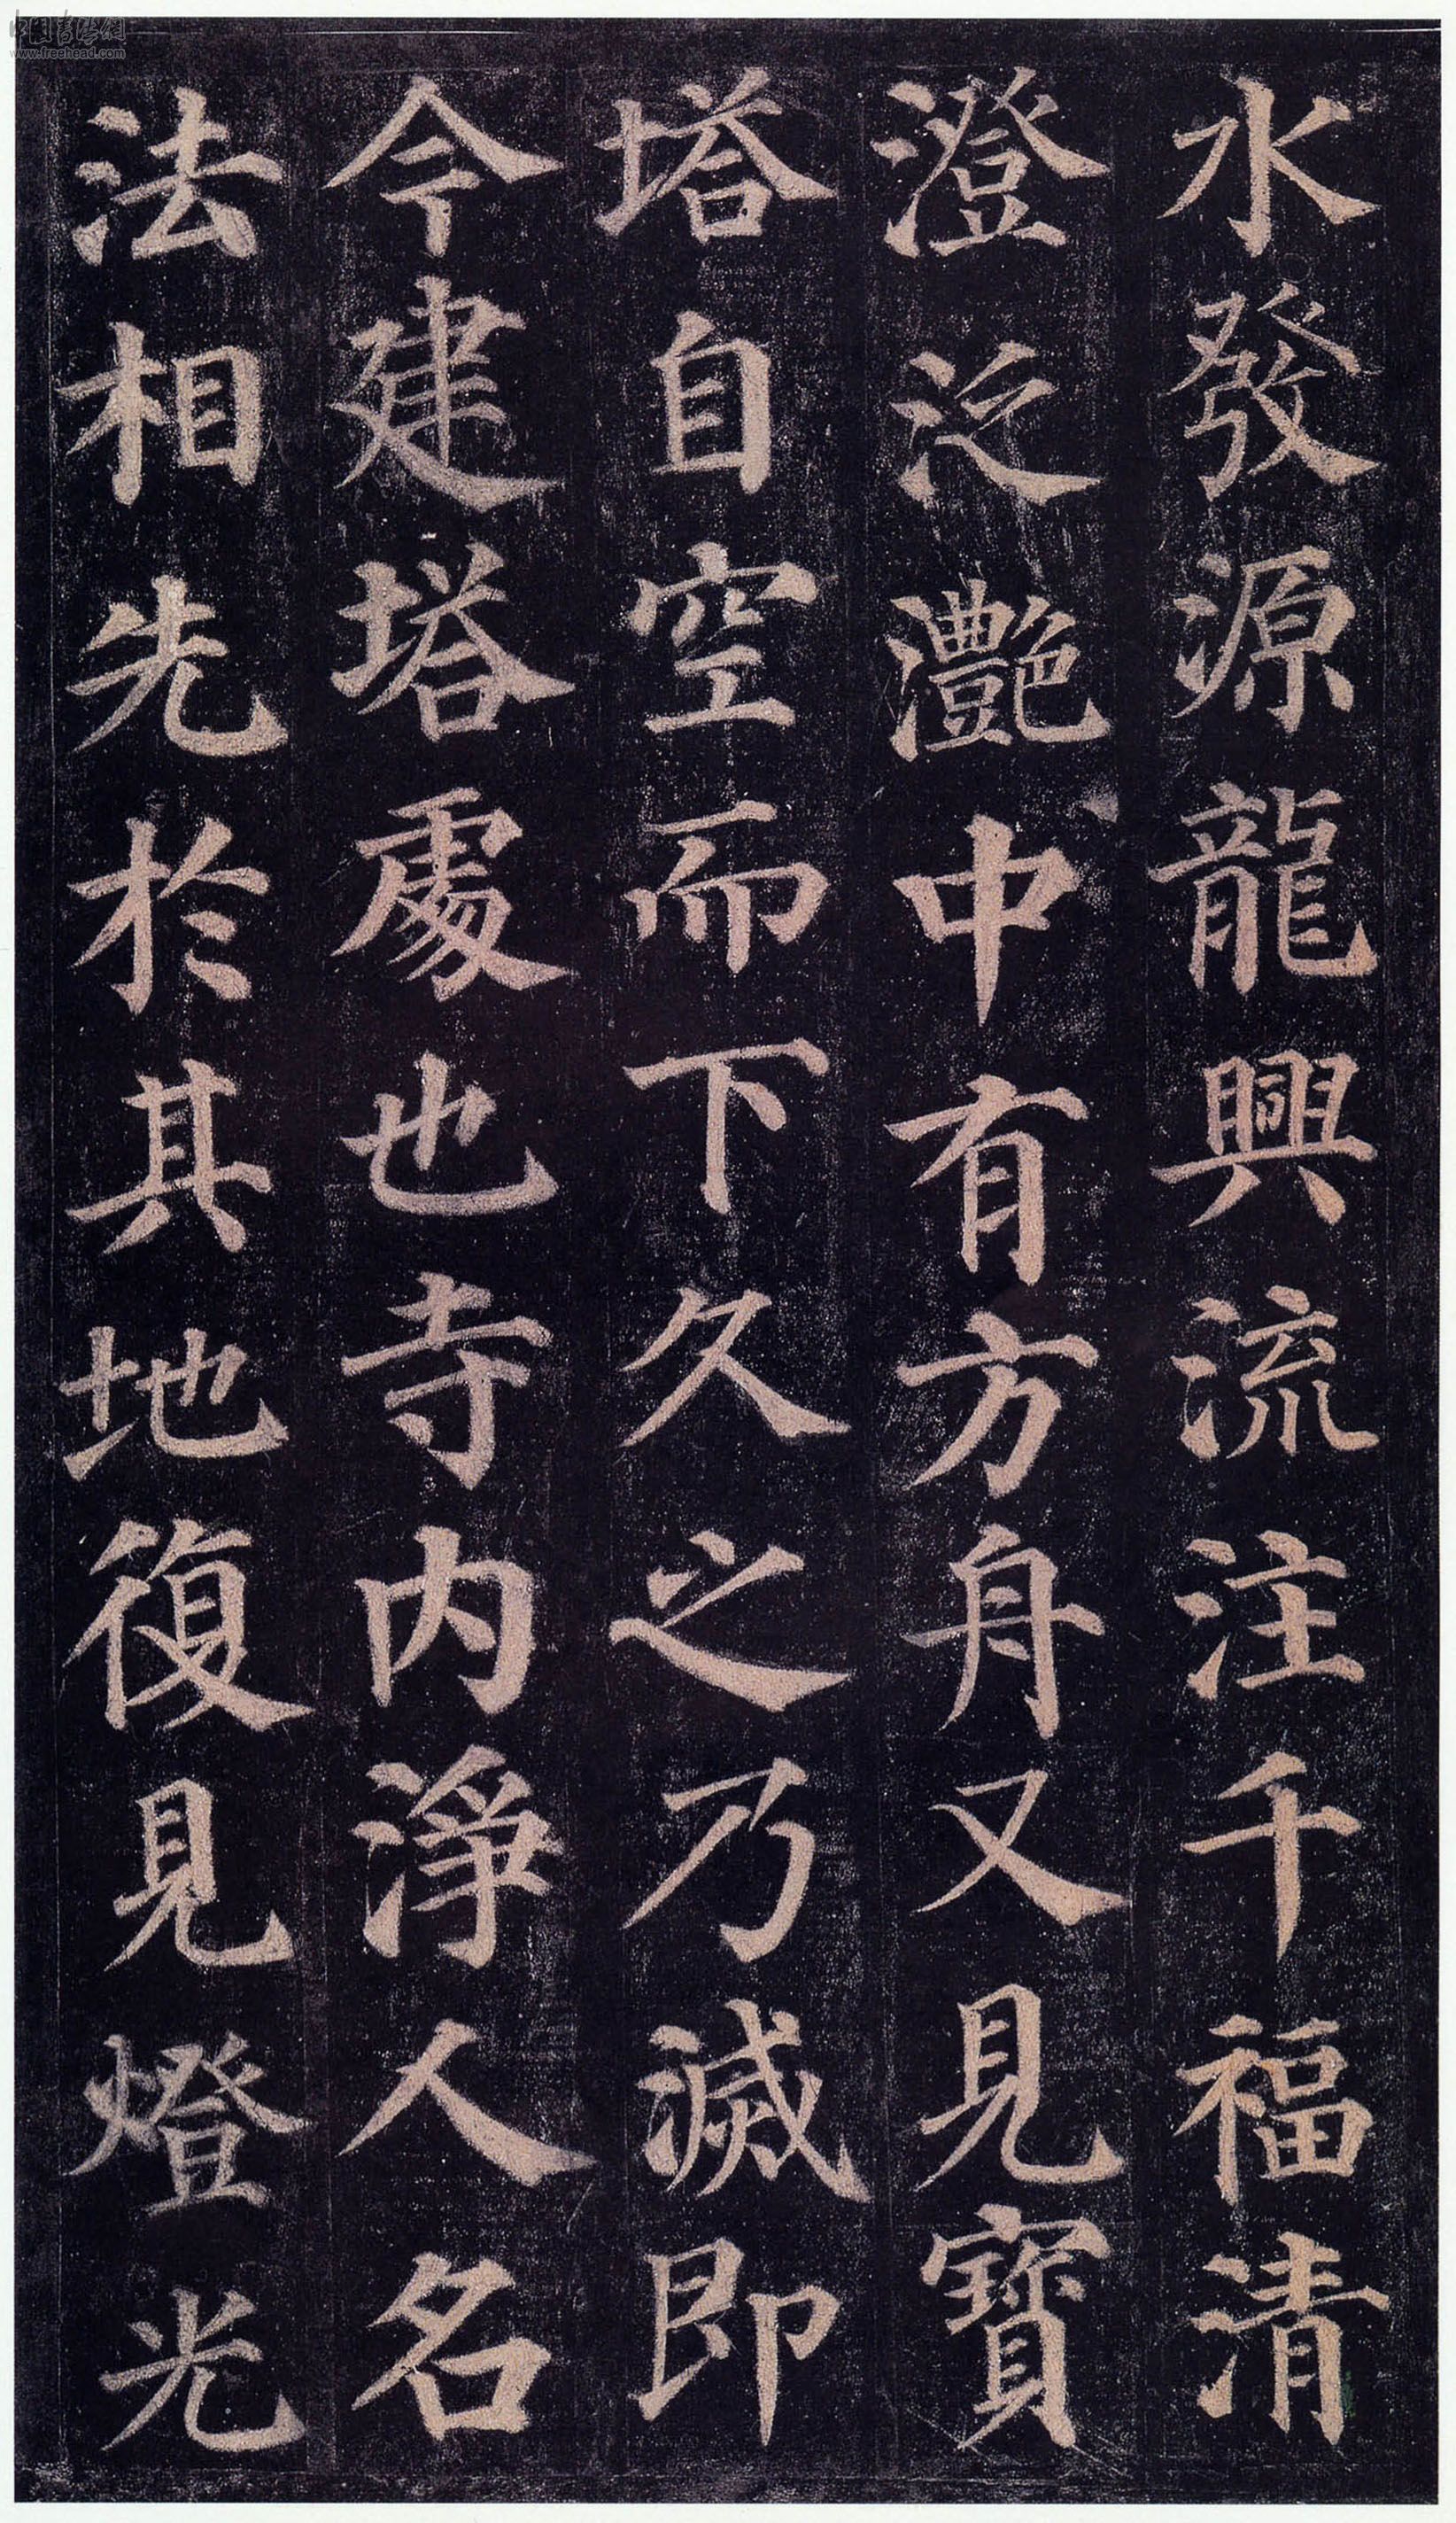 水發源龍興流注千福清
澄泛灩中有方舟又見寶
塔自空而下久之乃滅即
今建塔處也寺內淨人名
法相先於其地復見燈光
中国书法網
www.freehead.com